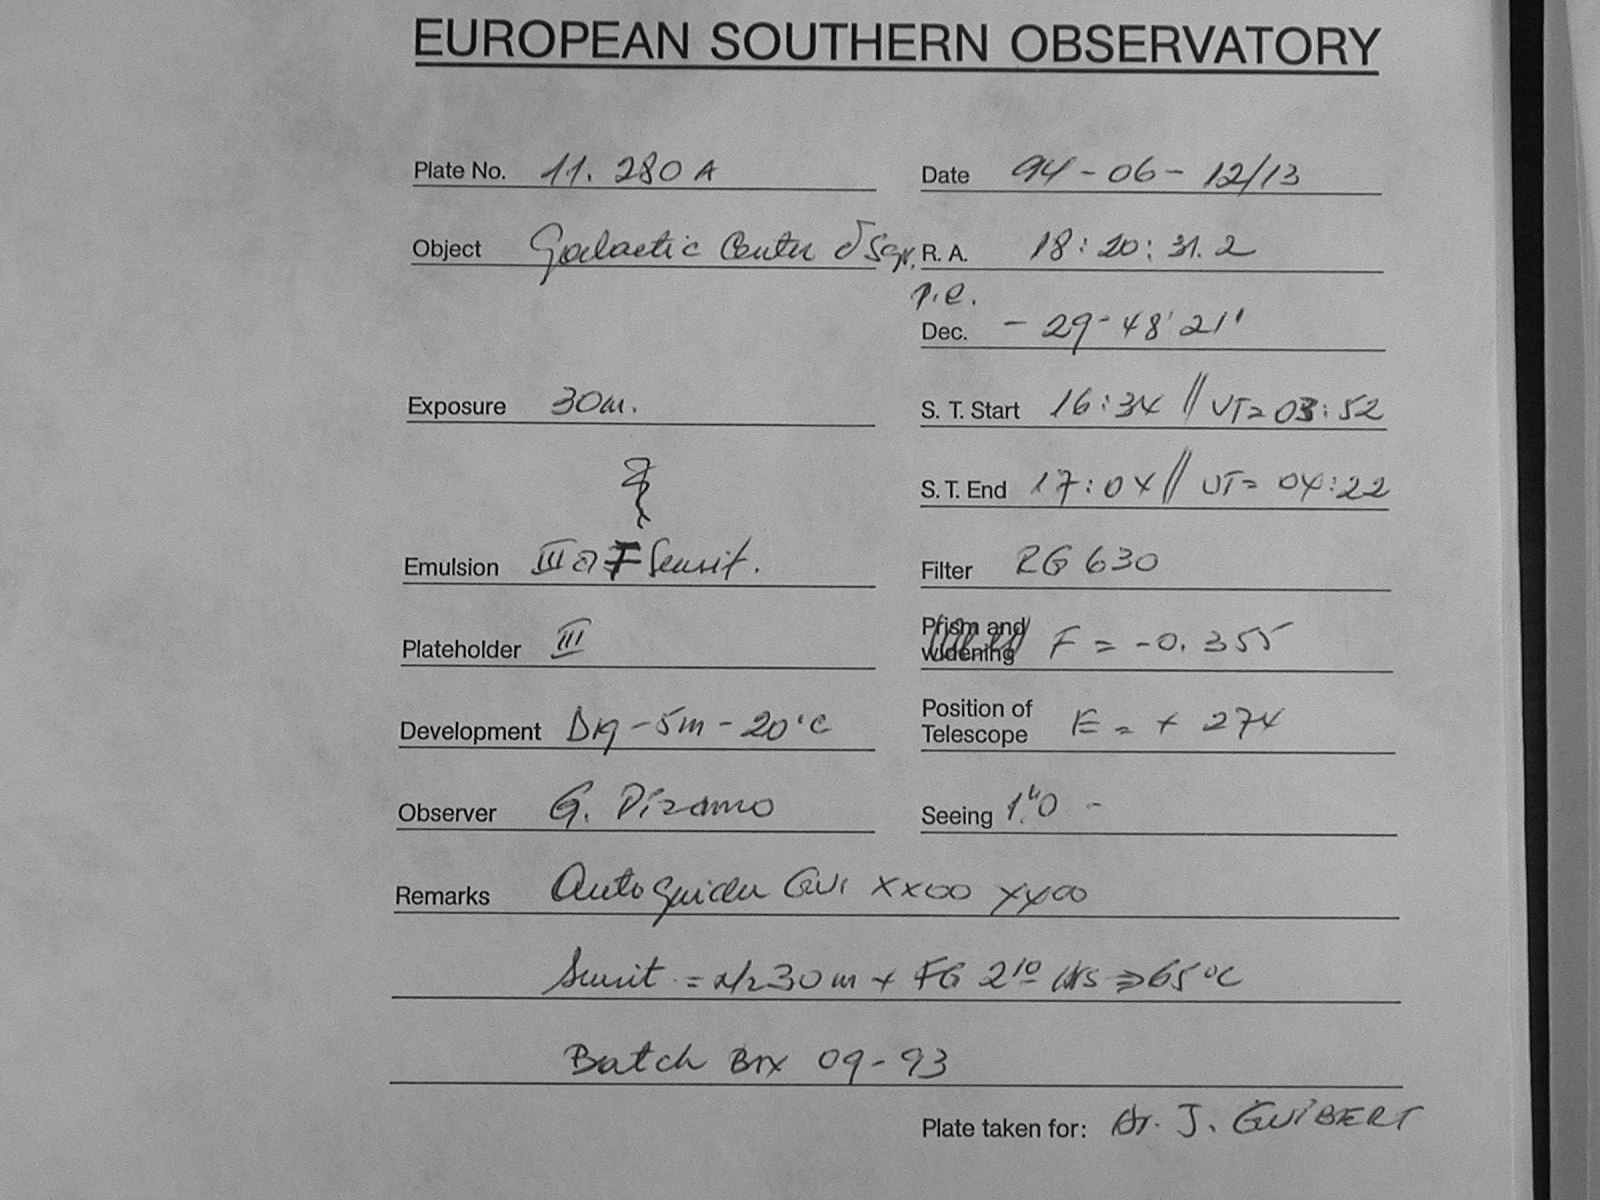 EUROPEAN SOUTHERN OBSERVATORY
Plate No. 11.280A Date 94-06-12/13
Object Galactic Center δ Sgr. R. A. 18:20:31.2
p.e.
Dec. -29-48'21'
Exposure 30m. S. T. Start 16:34 // UT=03:52
S. T. End 17:04 // UT= 04:22
Emulsion III a F Sensit. Filter RG 630
Plateholder III Prism and widening F = -0.355
Development D19-5m-20°C Position of Telescope E = + 274
Observer G. Pizarro Seeing 1"0 -
Remarks Autoguider XX00 YY00
Sensit = 30m + FG 2 65°C
Batch 09-93
Plate taken for: Dr. J. GUIBERT